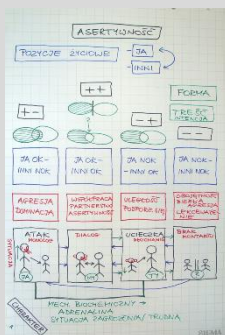 ASERTYWNOŚĆ
POZYCJE ŻYCIOWE
- JA
- INNI
FORMA
TREŚĆ
INTENCJA
+ -
+ +
?
- +
- -
JA OK -
INNI NOK
JA OK -
INNI OK
JA NOK
- INNI OK
JA NOK -
INNI NOK
AGRESJA
DOMINACJA
WSPÓŁPRACA
PARTNERSTWO
ASERTYWNOŚĆ
ULEGŁOŚĆ
BIERNA
AGRESJA
ATAK
DIALOG
UCIECZKA
BRAK
KONTAKTU
SYTUACJA
JA
TY
MECH. BIOCHEMICZNY →
ADRENALINA
SYTUACJA ZAGROŻENIA / TRUDNA
CHARAKTER